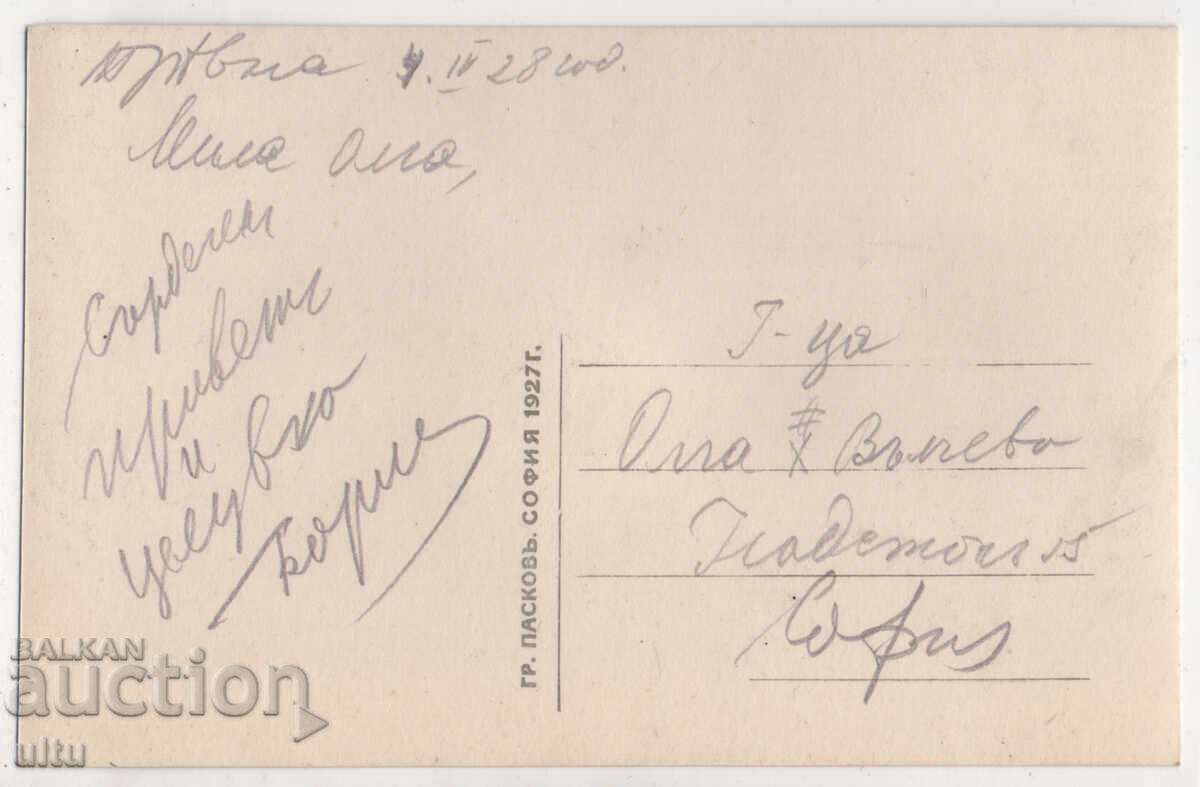 Трѣвна 4. IV 28 год.
Мила Олга,
Сърдечен
привет
и
целувка
Борис
ГР. ПАСКОВЪ. СОФИЯ 1927 Г.
Г-ца
Олга Вълчева
15
София
BALKAN
auction
ultu